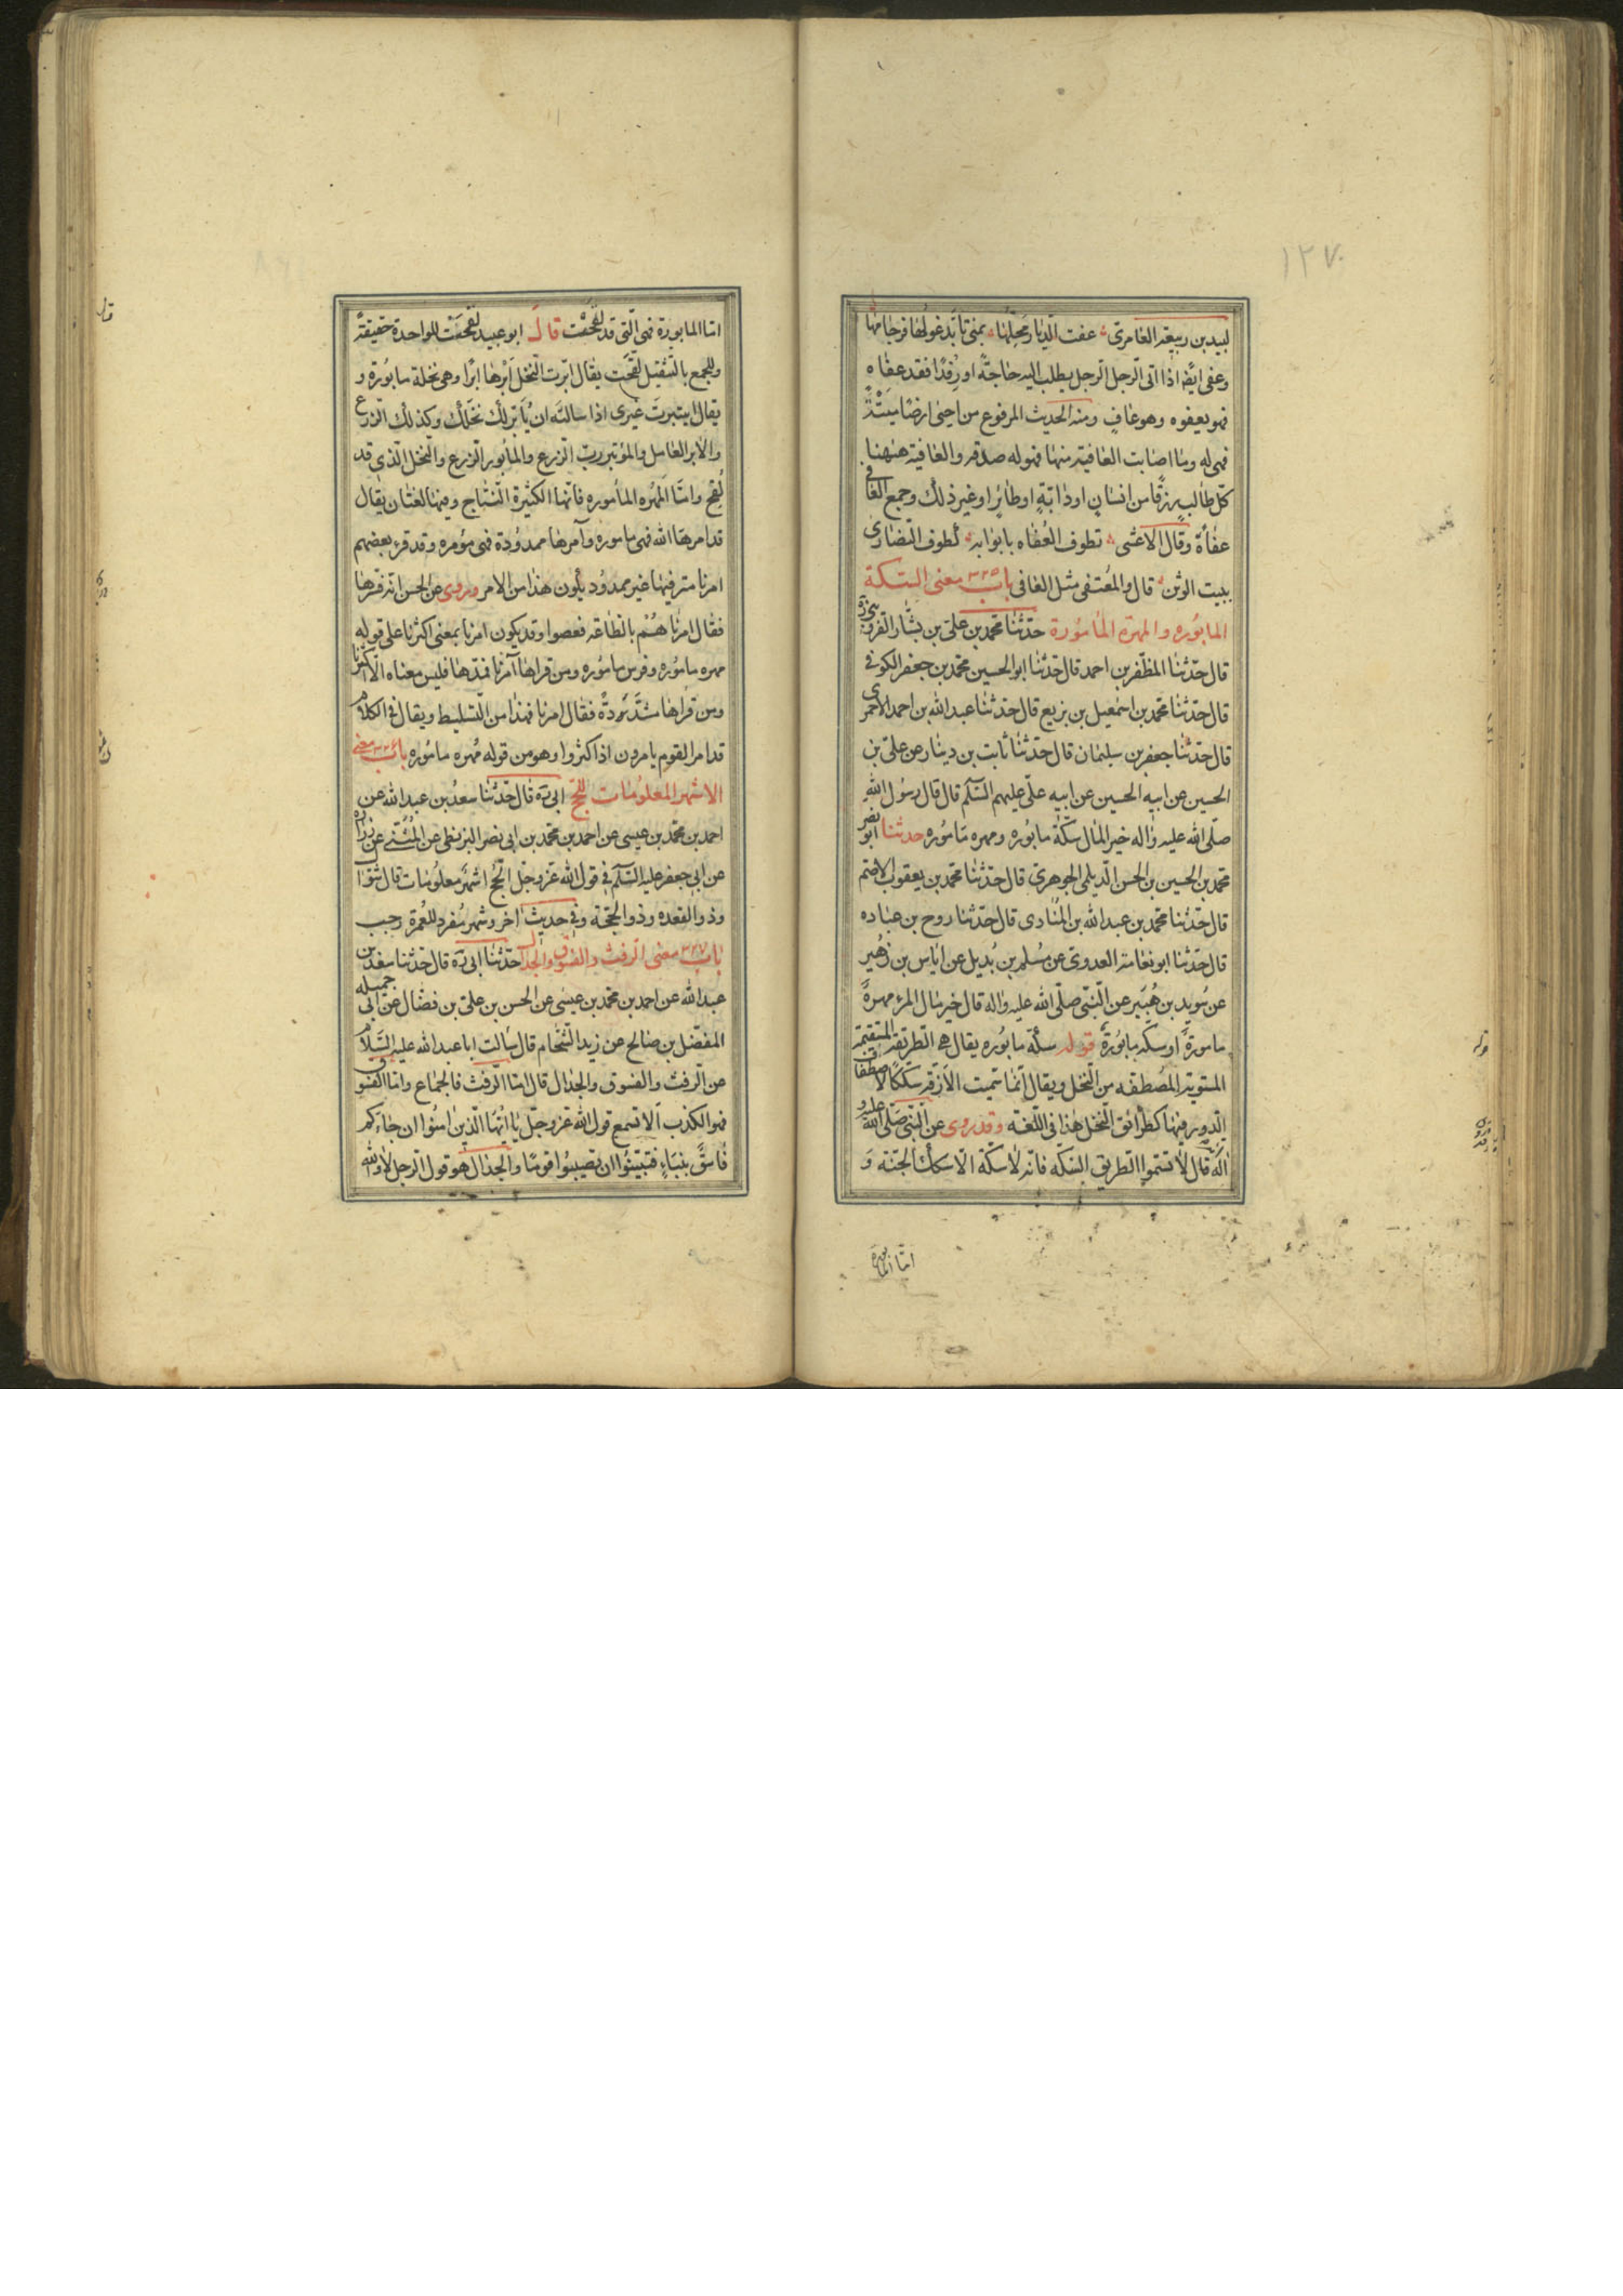 ١٢٧
لبيد بن ربيعة العامرى عفت الديار محلها بمنى تابد غولها فرجامها
وعفى ايضا اذا اتى الرجل الرجل يطلب اليه حاجة او رفدا فقد عفاه
فهو يعفوه وهو عاف ومنه الحديث المرفوع من احيى ارضا ميتة
فهى له وما اصابت العافية منها فهو له صدقة والعافية هيهنا
كل طالب رزقا من انسان او دابة او طائر او غير ذلك وجمع العافى
عفاة وقال الاعشى تطوف العفاه بابوابه كطوف النصارى
ببيت الوثن قال والمعتفى مثل العافى باب ٣٣٥ معنى السكة
المابوره والمهرة المامورة حدثنا محمد بن على بن بشار القزوينى
قال حدثنا المظفر بن احمد قال حدثنا ابو الحسين محمد بن جعفر الكوفى
قال حدثنا محمد بن اسمعيل بن بزيع قال حدثنا عبد الله بن احمد الاحمرى
قال حدثنا جعفر بن سليمان قال حدثنا ثابت بن دينار عن على بن
الحسين عن ابيه الحسين عن ابيه على عليهم السلم قال قال رسول الله
صلى الله عليه واله خير المال سكة مابوره ومهره ماموره حدثنا ابو نصر
محمد بن الحسين بن الحسن الديلمى الجوهرى قال حدثنا محمد بن يعقوب الاصم
قال حدثنا محمد بن عبد الله بن المنادى قال حدثنا روح بن عباده
قال حدثنا ابو نعامة العدوى عن مسلم بن بديل عن اياس بن زهير
عن سويد بن هبير عن النبى صلى الله عليه واله قال خير مال المرء مهرة
مامورة او سكة مابورة قوله سكة مابوره يقال هى الطريقة المستقيمة
المستوية المصطفه من النخل ويقال انما سميت الازقة سككا لاصطفاف
الدور فيها كطرائق النخل هذا فى اللغة وقد روى عن النبى صلى الله عليه و
اله قال لا تسموا الطريق السكة فانه لا سكة الا سكك الجنة و
اما المابورة
اما المابورة فهى التى قد لقحت قال ابو عبيد لقحت للواحدة خفيفة
وللجمع بالتثقيل لقحت يقال ابرت النخل ابرها ابرا وهى نخلة مابورة و
يقال ايتبرت غيرى اذا سالته ان يابر لك نخلك وكذلك الزرع
والابر العامل والمؤتبر رب الزرع والمابور الزرع والنخل الذى قد
لقح واما المهره الماموره فانها الكثيرة النتاج وفيها لغتان يقال
قد امرها الله فهى ماموره وآمرها ممدودة فهى مؤمره وقد قرء بعضهم
امرنا مترفيها غير ممدود يكون هذا من الامر وروى عن الحسن انه فسرها
فقال امرناهم بالطاعة فعصوا وقد يكون امرنا بمعنى اكثرنا على قوله
مهره ماموره وفرس ماموره ومن قراها آمرنا فمدها فليس معناه الا اكثرنا
ومن قراها مشددة فقال امرنا فهذا من التسليط ويقال فى الكلام
قد امر القوم يامرون اذا كثروا وهو من قوله مهره ماموره باب ٣٣٦ معنى
الاشهر المعلومات للحج ابى ره قال حدثنا سعد بن عبد الله عن
احمد بن محمد بن عيسى عن احمد بن محمد بن ابى نصر البزنطى عن المثنى عن زراره
عن ابى جعفر عليه السلم فى قول الله عز وجل الحج اشهر معلومات قال شوال
وذو القعده وذو الحجة وفى حديث اخر وشهر مفرد للعمرة رجب
باب ٣٣٧ معنى الرفث والفسوق والجدال حدثنا ابى ره قال حدثنا سعد بن
عبد الله عن احمد بن محمد بن عيسى عن الحسن بن على بن فضال عن ابى جميله
المفضل بن صالح عن زيد الشحام قال سالت ابا عبد الله عليه السلام
عن الرفث والفسوق والجدال قال اما الرفث فالجماع واما الفسوق
فهو الكذب الا تسمع قول الله عز وجل يا ايها الذين امنوا ان جاءكم
فاسق بنباء فتبينوا ان تصيبوا قوما والجدال هو قول الرجل لا والله